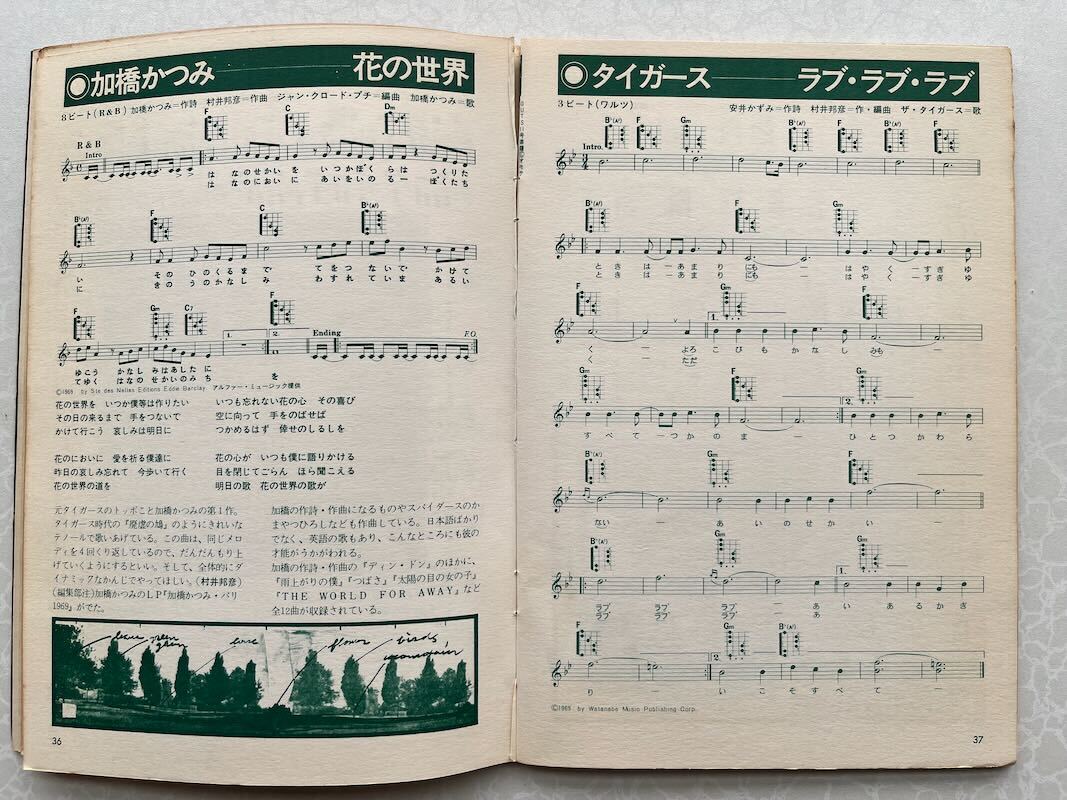 加橋かつみ 花の世界
8ビート(R&B) 加橋かつみ=作詩 村井邦彦=作曲 ジャン・クロード・プチ=編曲 加橋かつみ=歌
F C Dm
R & B
Intro
は なのせかい を いつかぼく らは つくりた
は なのにおい に あいをいの る ー ぼくたち
B♭(A♯) F C B♭(A♯)
い そのひのくるま で てをつ ないで かけて
に きのうのかなし み わすれていま あるい
F Gm C7 F
1. 2. Ending F.O.
ゆこう かなし みはあした に
てゆく はなの せかいのみ ち を
©1969 by Sté des Nelles Editions Eddie Barclay. アルファー・ミュージック提供
花の世界を いつか僕等は作りたい
その日の来るまで 手をつないで
かけて行こう 哀しみは明日に
花のにおいに 愛を祈る僕達に
昨日の哀しみ忘れて 今歩いて行く
花の世界の道を
いつも忘れない花の心 その喜び
空に向って 手をのばせば
つかめるはず 倖せのしるしを
花の心が いつも僕に語りかける
目を閉じてごらん ほら聞こえる
明日の歌 花の世界の歌が
元タイガースのトッポこと加橋かつみの第1作。
タイガース時代の『廃虚の鳩』のようにきれいな
テノールで歌いあげている。この曲は、同じメロ
ディを4回くり返しているので、だんだんもり上
げていくようにするといい。そして、全体的にダ
イナミックなかんじでやってほしい。(村井邦彦)
(編集部注)加橋かつみのLP『加橋かつみ・パリ
1969』がでた。
加橋の作詩・作曲になるものやスパイダースのか
まやつひろしなども作曲している。日本語ばかり
でなく、英語の歌もあり、こんなところにも彼の
才能がうかがわれる。
加橋の作詩・作曲の『ディン・ドン』のほかに、
『雨上がりの僕』『つばさ』『太陽の目の女の子』
『THE WORLD FOR AWAY』など
全12曲が収録されている。
flower birds
mountain
36
タイガース ラブ・ラブ・ラブ
3ビート(ワルツ) 安井かずみ=作詩 村井邦彦=作・編曲 ザ・タイガース=歌
B♭(A♯) F Gm B♭(A♯) F B♭(A♯) F
Intro.
B♭(A♯) F Gm
と き は ー あ ま り にも ー は や く ー す ぎ ゆ
と き は ー あ ま り にも ー は や く ー す ぎ ゆ
F Gm F
1.
く ー よろ こ び も か な し みも ー
く ー ただ
Gm F Gm
2.
す べ て ー つ か の ま ー ひ と つ か わ ら
B♭(A♯) Gm F
ない ー あ い の せ か い ー
B♭(A♯) Gm Gm
ラブ ラブ ラブ ー あ い あ る か ぎ
ラブ ラブ ラブ ー あ
F Gm B♭(A♯)
2.
り ー い こ そ す べ て ー
©1969 by Watanabe Music Publishing Corp.
37